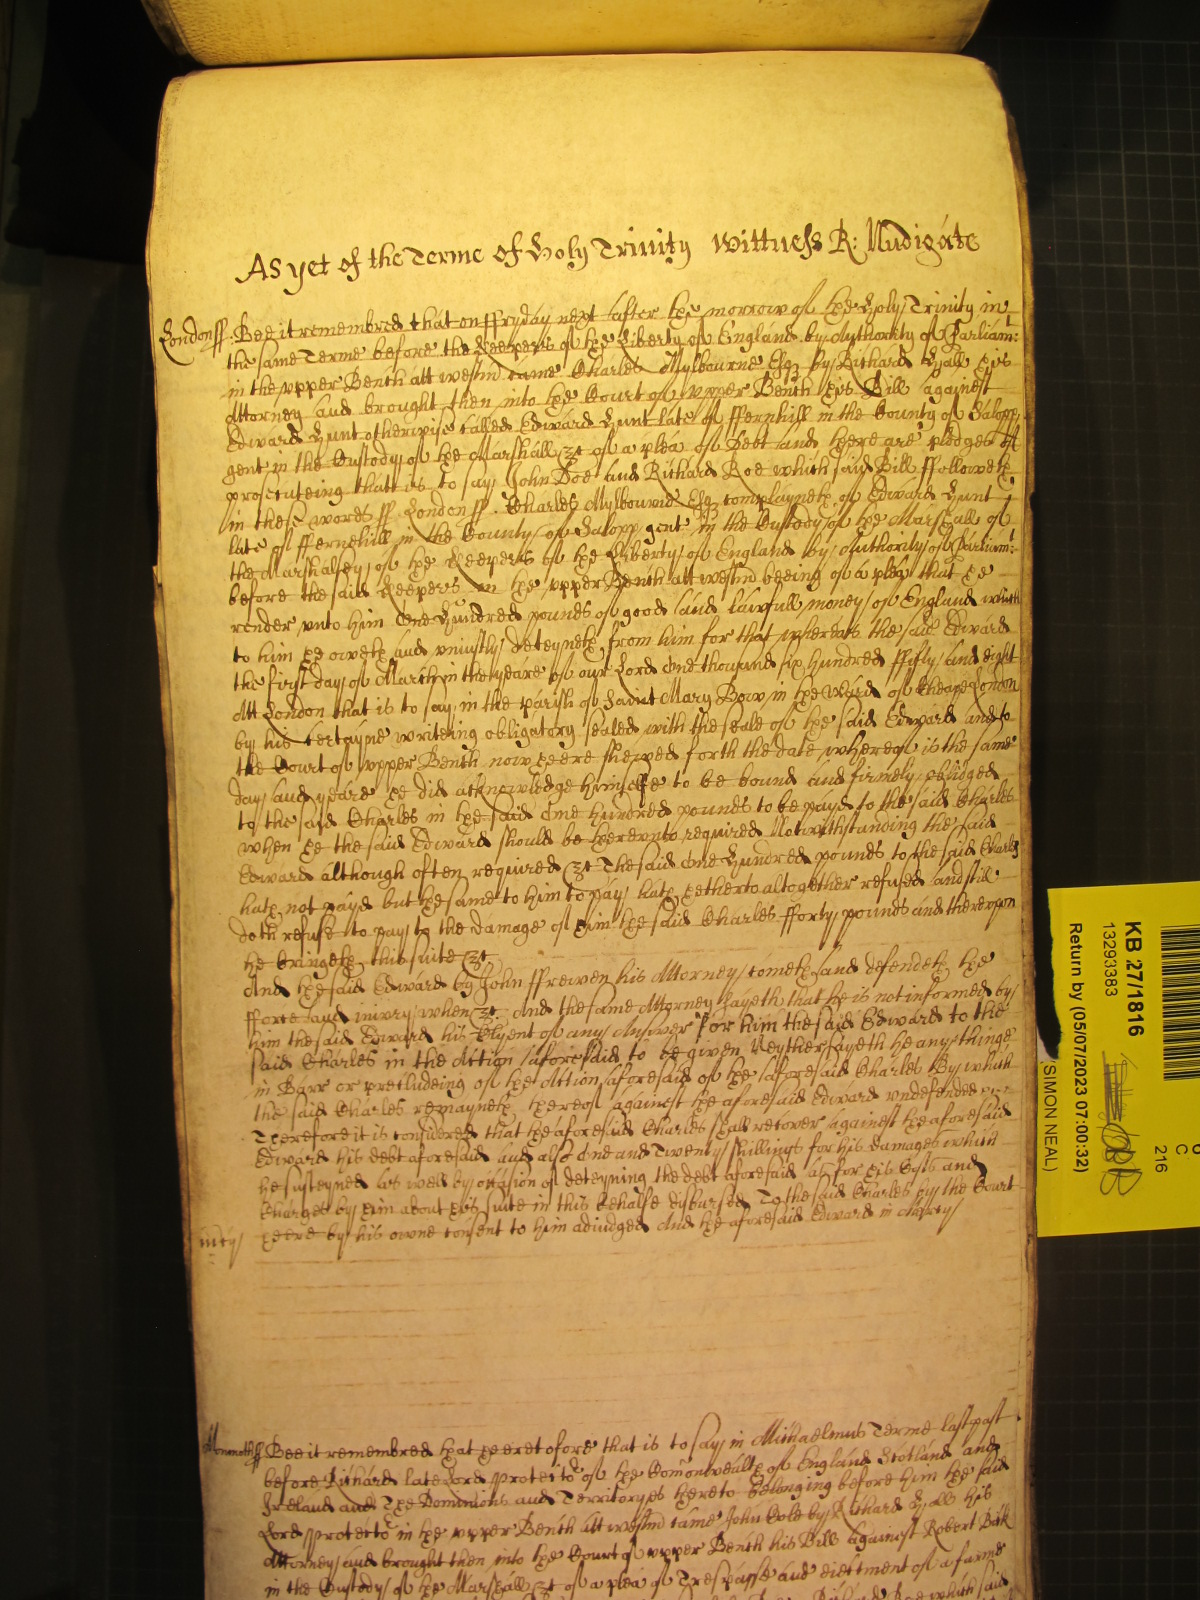 As yet of the Terme of Holy Trinity Wittness R: Nudigate
London ss. Bee it remembred that on ffryday next after the morrow of the Holy Trinity in
the same Terme before the Keepers of the Liberty of England by Authority of Parliam:t
in the upper Bench att westm came Charles Mylbourne Esq by Richard Hall his
Attorney and brought then into the Court of upper Bench his Bill against
Edward Hunt otherwyse called Edward Hunt late of ffernhill in the County of Salopp
gent in the Custody of the Marshall &c of a plea of Debt and there are pledges of
prosecuteing that is to say John Doe and Richard Roe which said Bill followeth
in these words ss London ss. Charles Mylbourne Esq complayneth of Edward Hunt
late of ffernehill in the County of Salopp gent in the Custody of the Marshall of
the Marshalsey of the Keepers of the Liberty of England by Authority of Parliam:t
before the said Keepers in the upper Bench att westm beeing of a plea that he
render unto him One Hundred pounds of good and lawfull money of England which
to him he oweth and uniustly deteyneth from him for that whereas the said Edward
the first day of March in the yeare of our Lord One thousand six hundred ffifty and eight
Att London that is to say in the parish of Saint Mary Bow in the Ward of Cheape London
by his certayne writeing obligatory sealed with the seale of the said Edward and to
the Court of upper Bench now here shewed forth the date whereof is the same
day and yeare he did acknowledge himselfe to be bound and firmely obliged
to the said Charles in the said One hundred pounds to be payd to the said Charles
when he the said Edward should be thereunto required Notwithstanding the said
Edward although often required &c The said One Hundred pounds to the said Charles
hath not payd but the same to him to pay hath hetherto altogether refused and still
doth refuse to pay to the damage of him the said Charles fforty pounds and thereupon
he bringeth this suite &c
And the said Edward by John ffrewen his Attorney cometh and defendeth the
fforce and iniury when &c And the same Attorney sayeth that he is not informed by
him the said Edward his Clyent of any Answer for him the said Edward to the
said Charles in the Action aforesaid to be given Neyther sayeth he any thinge
in Barr or precludeing of the Action aforesaid of the aforesaid Charles By which
the said Charles remayneth thereof against the aforesaid Edward undefended
Therefore it is considered that the aforesaid Charles shall recover against the aforesaid
Edward his debt aforesaid and also One and Twenty shillings for his damages which
he susteyned as well by occasion of deteyning the debt aforesaid as for his Costs and
Charges by him about his suite in this behalfe disbursed To the said Charles by the Court
here by his owne consent to him adiudged And the aforesaid Edward in Mercy
mcy
Monmoth ss Bee it remembred that heretofore that is to say in Michaelmas Terme last past
before Richard late Lord Protector of the Comonwealth of England Scotland and
Ireland and the Dominions and Territoryes thereto belonging before him the said
Lord Protector in the upper Bench att westm came John Cole by Richard Hall his
Attorney and brought then into the Court of upper Bench his Bill against Robert
in the Custody of the Marshall &c of a plea of Trespasse and eiectment of a farme
KB 27/1816
13293383
Return by (05/07/2023 07:00:32)
(SIMON NEAL)
C
216